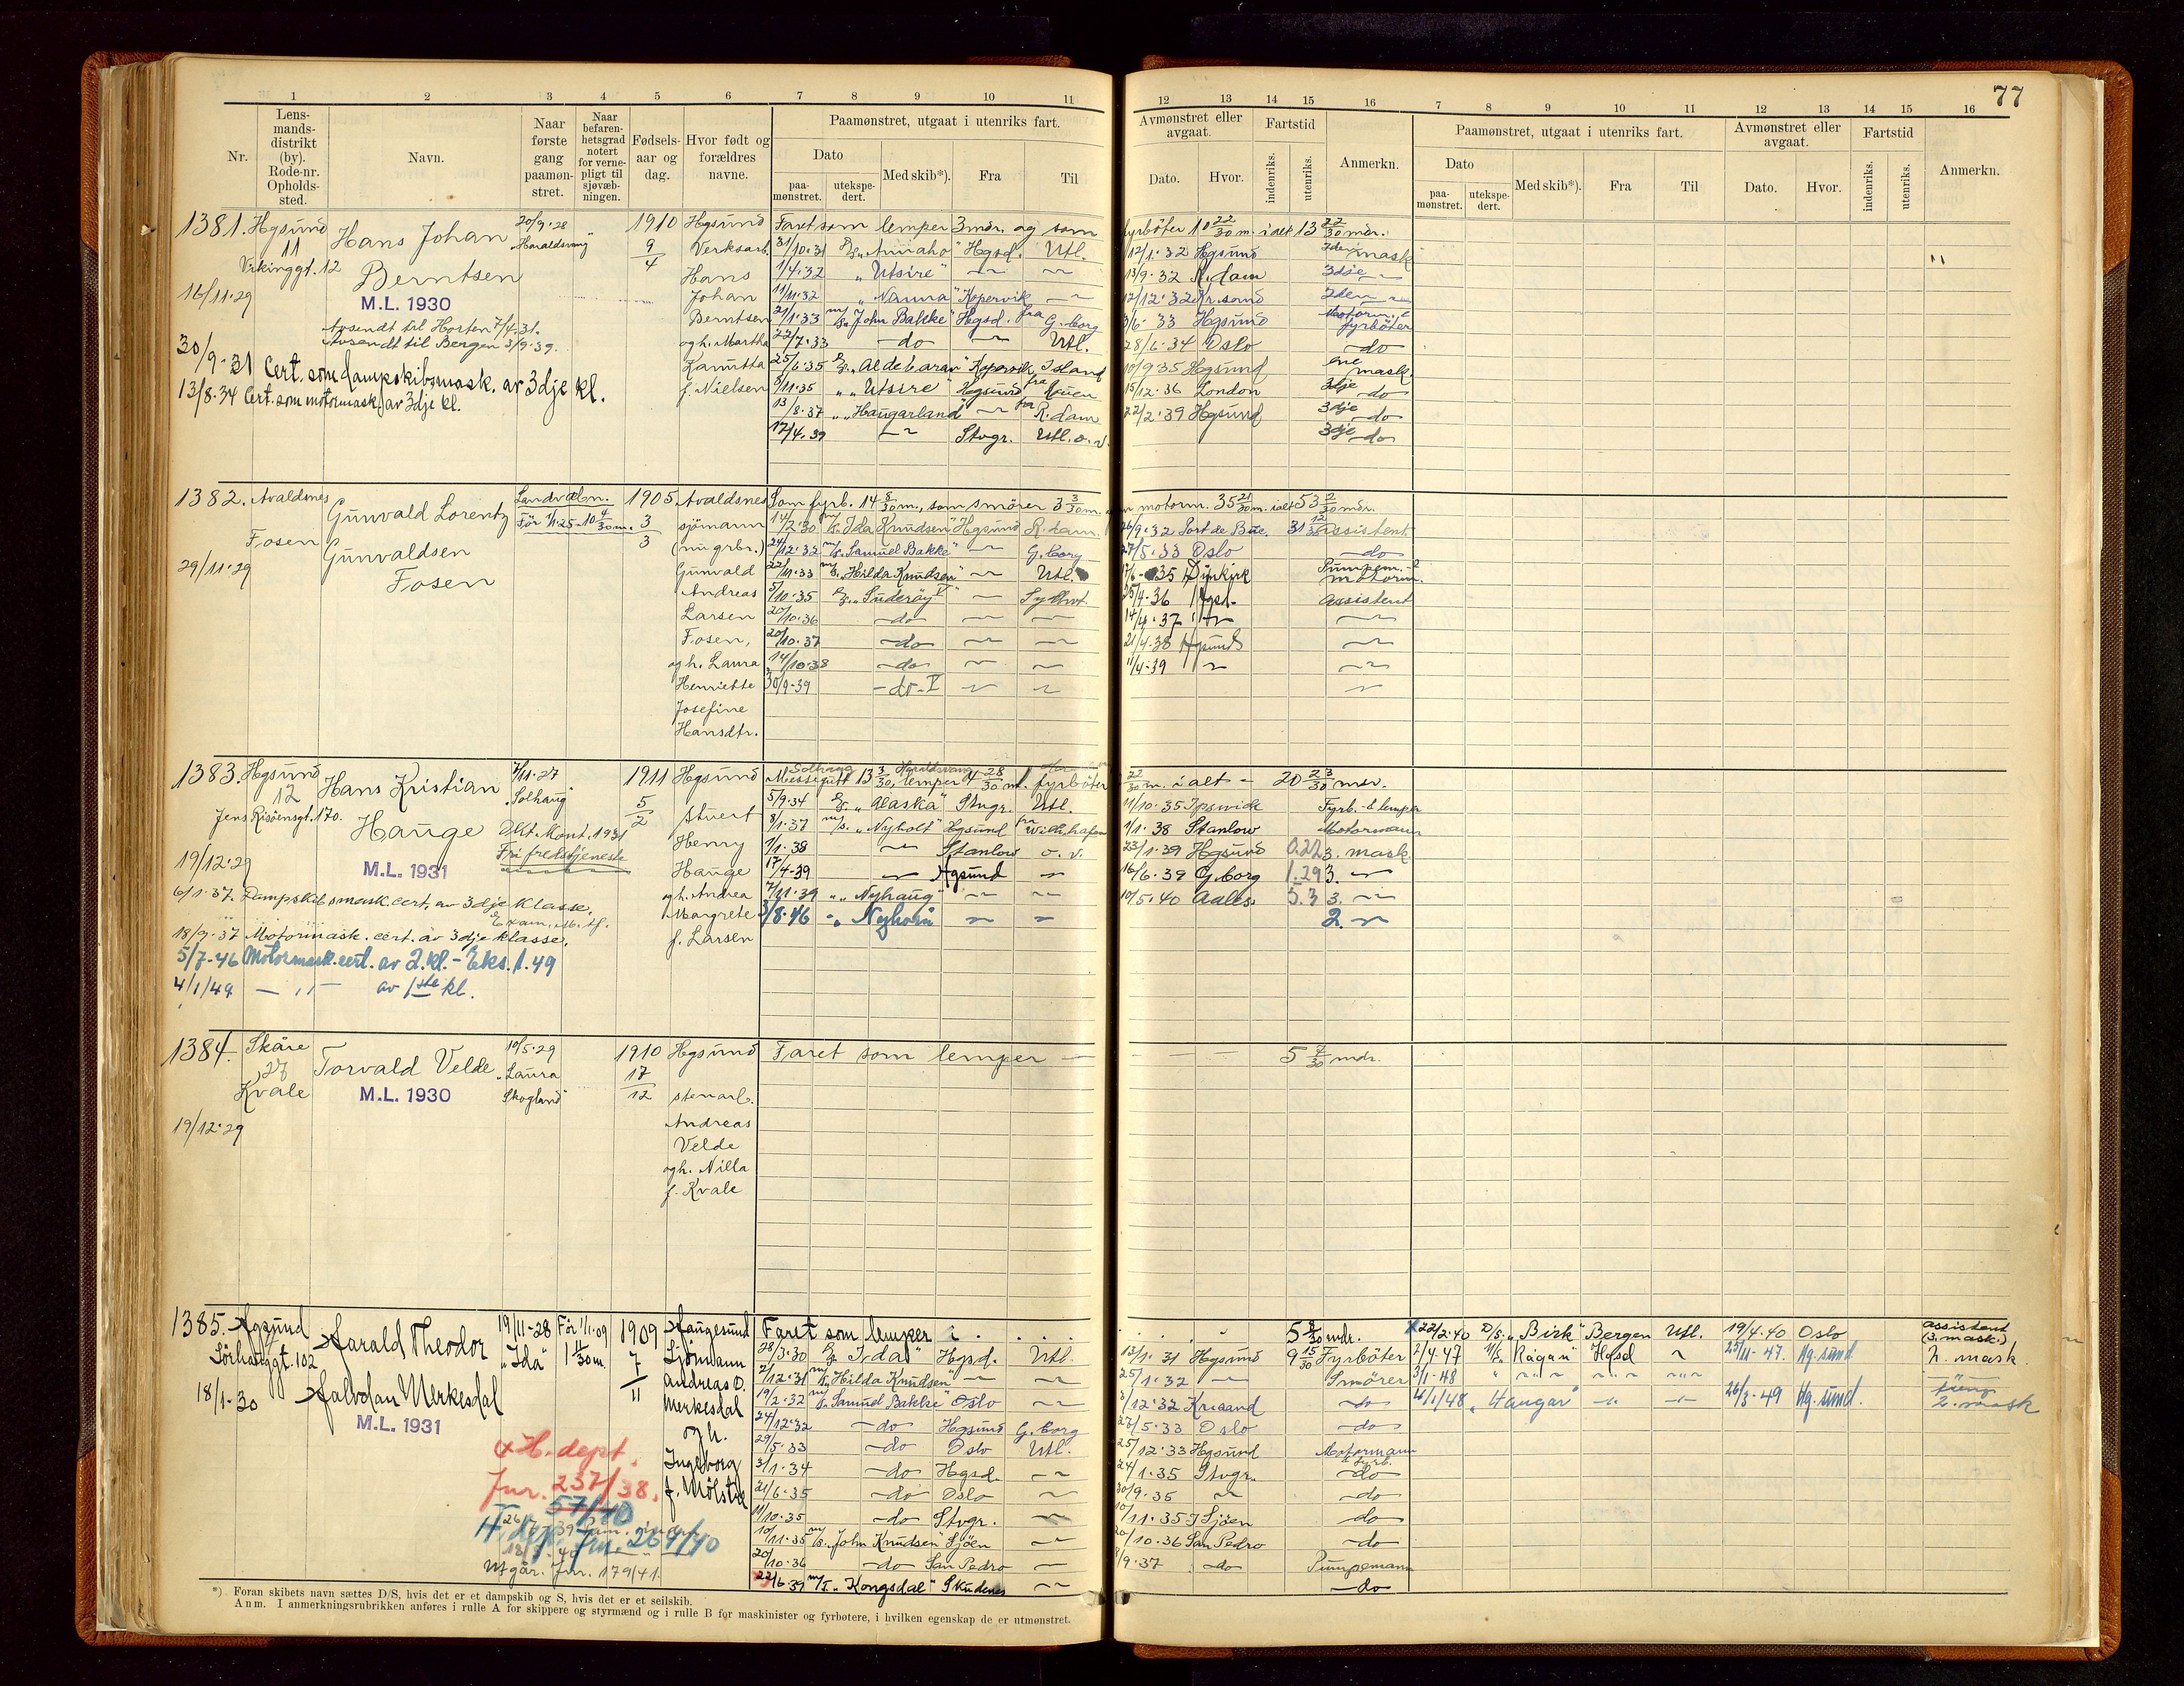 77
1 2 3 4 5 6 7 8 9 10 11
12 13 14 15 16 7 8 9 10 11 12 13 14 15 16
Nr.
Lens-
mands-
distrikt
(by).
Rode-nr.
Opholds-
sted.
Navn.
Naar
første
gang
paamøn-
stret.
Naar
befaren-
hetsgrad
notert
for verne-
pligt til
sjøvæb-
ningen.
Fødsels-
aar og
dag.
Hvor født og
forældres
navne.
Paamønstret, utgaat i utenriks fart.
Dato
paa-
mønstret.
utekspe-
dert.
Med skib*).
Fra
Til
Avmønstret eller
avgaat.
Dato.
Hvor.
Fartstid
indenriks.
utenriks.
Anmerkn.
Paamønstret, utgaat i utenriks fart.
Dato
paa-
mønstret.
utekspe-
dert.
Med skib*).
Fra
Til
Avmønstret eller
avgaat.
Dato.
Hvor.
Fartstid
indenriks.
utenriks.
Anmerkn.
1381. Hgsund
11
Vikinggt. 12
16/11.29
Hans Johan
Berntsen
M.L. 1930
Avsendt til Horten 7/4.31.
Avsendt til Bergen 3/9.39.
30/9.31 Cert. som dampskibsmask. av 3dje kl.
13/8.34 Cert. som motormask. av 3dje kl.
20/9.28
"Haraldsvang"
1910
9
4
Hgsund
Verksarb.
Hans
Johan
Berntsen
og h. Martha
Kamitta
f. Nielsen
Faret som lemper 3 mdr. og som fyrböter 10 22/30 m. i alt 13 22/30 mdr.
31/10.31 "Annaho" Hgsd. Utl. 12/1.32 Hgsund 2den mask
1/4.32 "Utsire" 13/9.32 R.dam 3dje
11/11.32 "Nanna" Kopervik 12/12.32 Kr.sand 2den
21/1.33 m/s. John Bakke" Hgsd. fra G.borg 3/6.33 Hgsund Motorm. & fyrböter
22/7.33 do Utl. 28/6.34 Oslo do
25/6.35 "Aldebaran" Kopervik Island 10/9 35 Hgsund ene mask.
9/11.35 "Utsire" Hgsund fra Rouen 15/12.36 London 3dje do
13/8.37 "Haugarland" fra R.dam 22/2.39 Hgsund 3dje do
17/4.39 Stvgr. Utl. o. v. 3dje do
1382. Avaldsnes
Fosen
29/11.29
Gunvald Lorentz
Gunvaldsen
Fosen
Landvebn.
Før 1/1.25 - 10 4/30 m.
1905
3
3
Avaldsnes
sjömann
(nu grbr.)
Gunvald
Andreas
Larsen
Fosen,
og h. Laura
Henriette
Josefine
Hansdtr.
Som fyrb. 14 8/30 m., som smörer 3 3/30 m. motorm. 35 21/30 m. ialt 53 2/30 mdr.
14/2.30 m/s. Ida Knudsen" Hgsund R.dam 26/9.32 Port de Buc. 31 12/30 Assistent.
24/12.32 m/s. Samuel Bakke" G.borg 27/5.33 Oslo do
22/11.33 m/s. "Hilda Knudsen" Utl. 17/6-35 Dunkirk Pumpem. & motorm.
5/10.35 "Suderöy V" Sydhvt. 25/4.36 Hgsd. Assistent
20/10.36 do 14/4.37
20/10.37 do 21/4.38 Hgsund
14/10.38 do 11/4.39
30/9.39 do - V
1383. Hgsund
12
Jens Risöensgt. 170.
19/12.29
Hans Kristian
Hauge
M.L. 1931
7/11.27
"Solhaug"
Dkt. Mont. 1931
Fri fredstjeneste
6/1.37. Dampskibsmask. cert. av 3dje klasse.
18/9.37 Motormask. cert. av 3dje klasse.
5/7-46 Motormask. cert. av 2. kl. - Eks. 1.49
4/1/49 — " — av 1ste kl.
1911
5
2
Hgsund
stuert
Henry
Hauge
og h. Andrea
Margrete
f. Larsen
Solhaug Haraldsvang
Messegutt 13 3/30, lemper 4 28/30 m. fyrböter 22/30 m. i alt - 20 23/30 mdr.
5/9.34 "Alaska" Stvgr. Utl. 11/10.35 Ipswick Fyrb. & lemper
8/1.37 m/s. "Nyholt" Hgsund fra Wilh.hafen 1/1.38 Stanlow Motormann
1/1.38 Stanlow o. v. 23/1.39 Hgsund 0.22 3. mask.
17/4-39 Hgsund 16/6.39 G.borg 1.29 3.
7/11.39 "Nyhaug" 10/5.40 Aales. 5.3 3.
3/8.46 "Nyhorn 2.
1384. Skåre
27
Kvale
19/12.29
Torvald Velde
M.L. 1930
10/5.29
"Laura
Skogland"
1910
17
12
Hgsund
stenarb.
Andreas
Velde
og h. Nilla
f. Kvale
Faret som lemper — — — — 5 7/30 mdr.
1385. Hgsund
Sörhauggt. 102
18/1-30
Harald Theodor
Halvdan Merkesdal
M.L. 1931
19/11-28
"Ida"
Før 1/1.09
1 11/30 m.
1909
7
11
Haugesund
Sjömann
Andreas O.
Merkesdal
og h.
Ingeborg
f. Mölstre
+ H. dept.
Jnr. 237/38.
57/40
H. dp. Jnr. 264/40
Utgår. Jnr. 179/41.
Faret som lemper i . . . . 5 8/30 mdr.
28/3.30 "Ida" Hgsd. Utl. 13/1.31 Hgsund 9 15/30 Fyrböter
7/12.31 m/s. Hilda Knudsen 25/1.32 Smörer
19/2.32 m/s. Samuel Bakke" Oslo 3/12.32 Krisand do
24/12.32 do Hgsund G.borg 27/5.33 Oslo do
29/5.33 do Oslo Utl. 25/12.33 Hgsund Motormann & fyrb.
3/1.34 do Hgsd. 24/1.35 Stvgr. do
21/6.35 do Oslo 30/9.35 do
11/10.35 do Stvgr. 10/11.35 I Sjöen do
10/11.35 m/s. John Knudsen" Sjöen 20/10.36 San Pedro do
20/10.36 do San Pedro 1/9.37 do Pumpemann
22/6.39 m/T. "Kongsdal" Skudenes do
22/2.40 D/S. "Birk" Bergen Utl. 19/4.40 Oslo assistent (3. mask.)
2/4.47 "Rågan" Hgsd 25/11-47. Hg.sund. 2. mask.
3/1-48
4/1/48 "Haugar" 26/3.49 Hg.sund. 2. mask
*) Foran skibets navn sættes D/S, hvis det er et dampskib og S, hvis det er et seilskib.
Anm. I anmerkningsrubrikken anføres i rulle A for skippere og styrmænd og i rulle B for maskinister og fyrbøtere, i hvilken egenskap de er utmønstret.